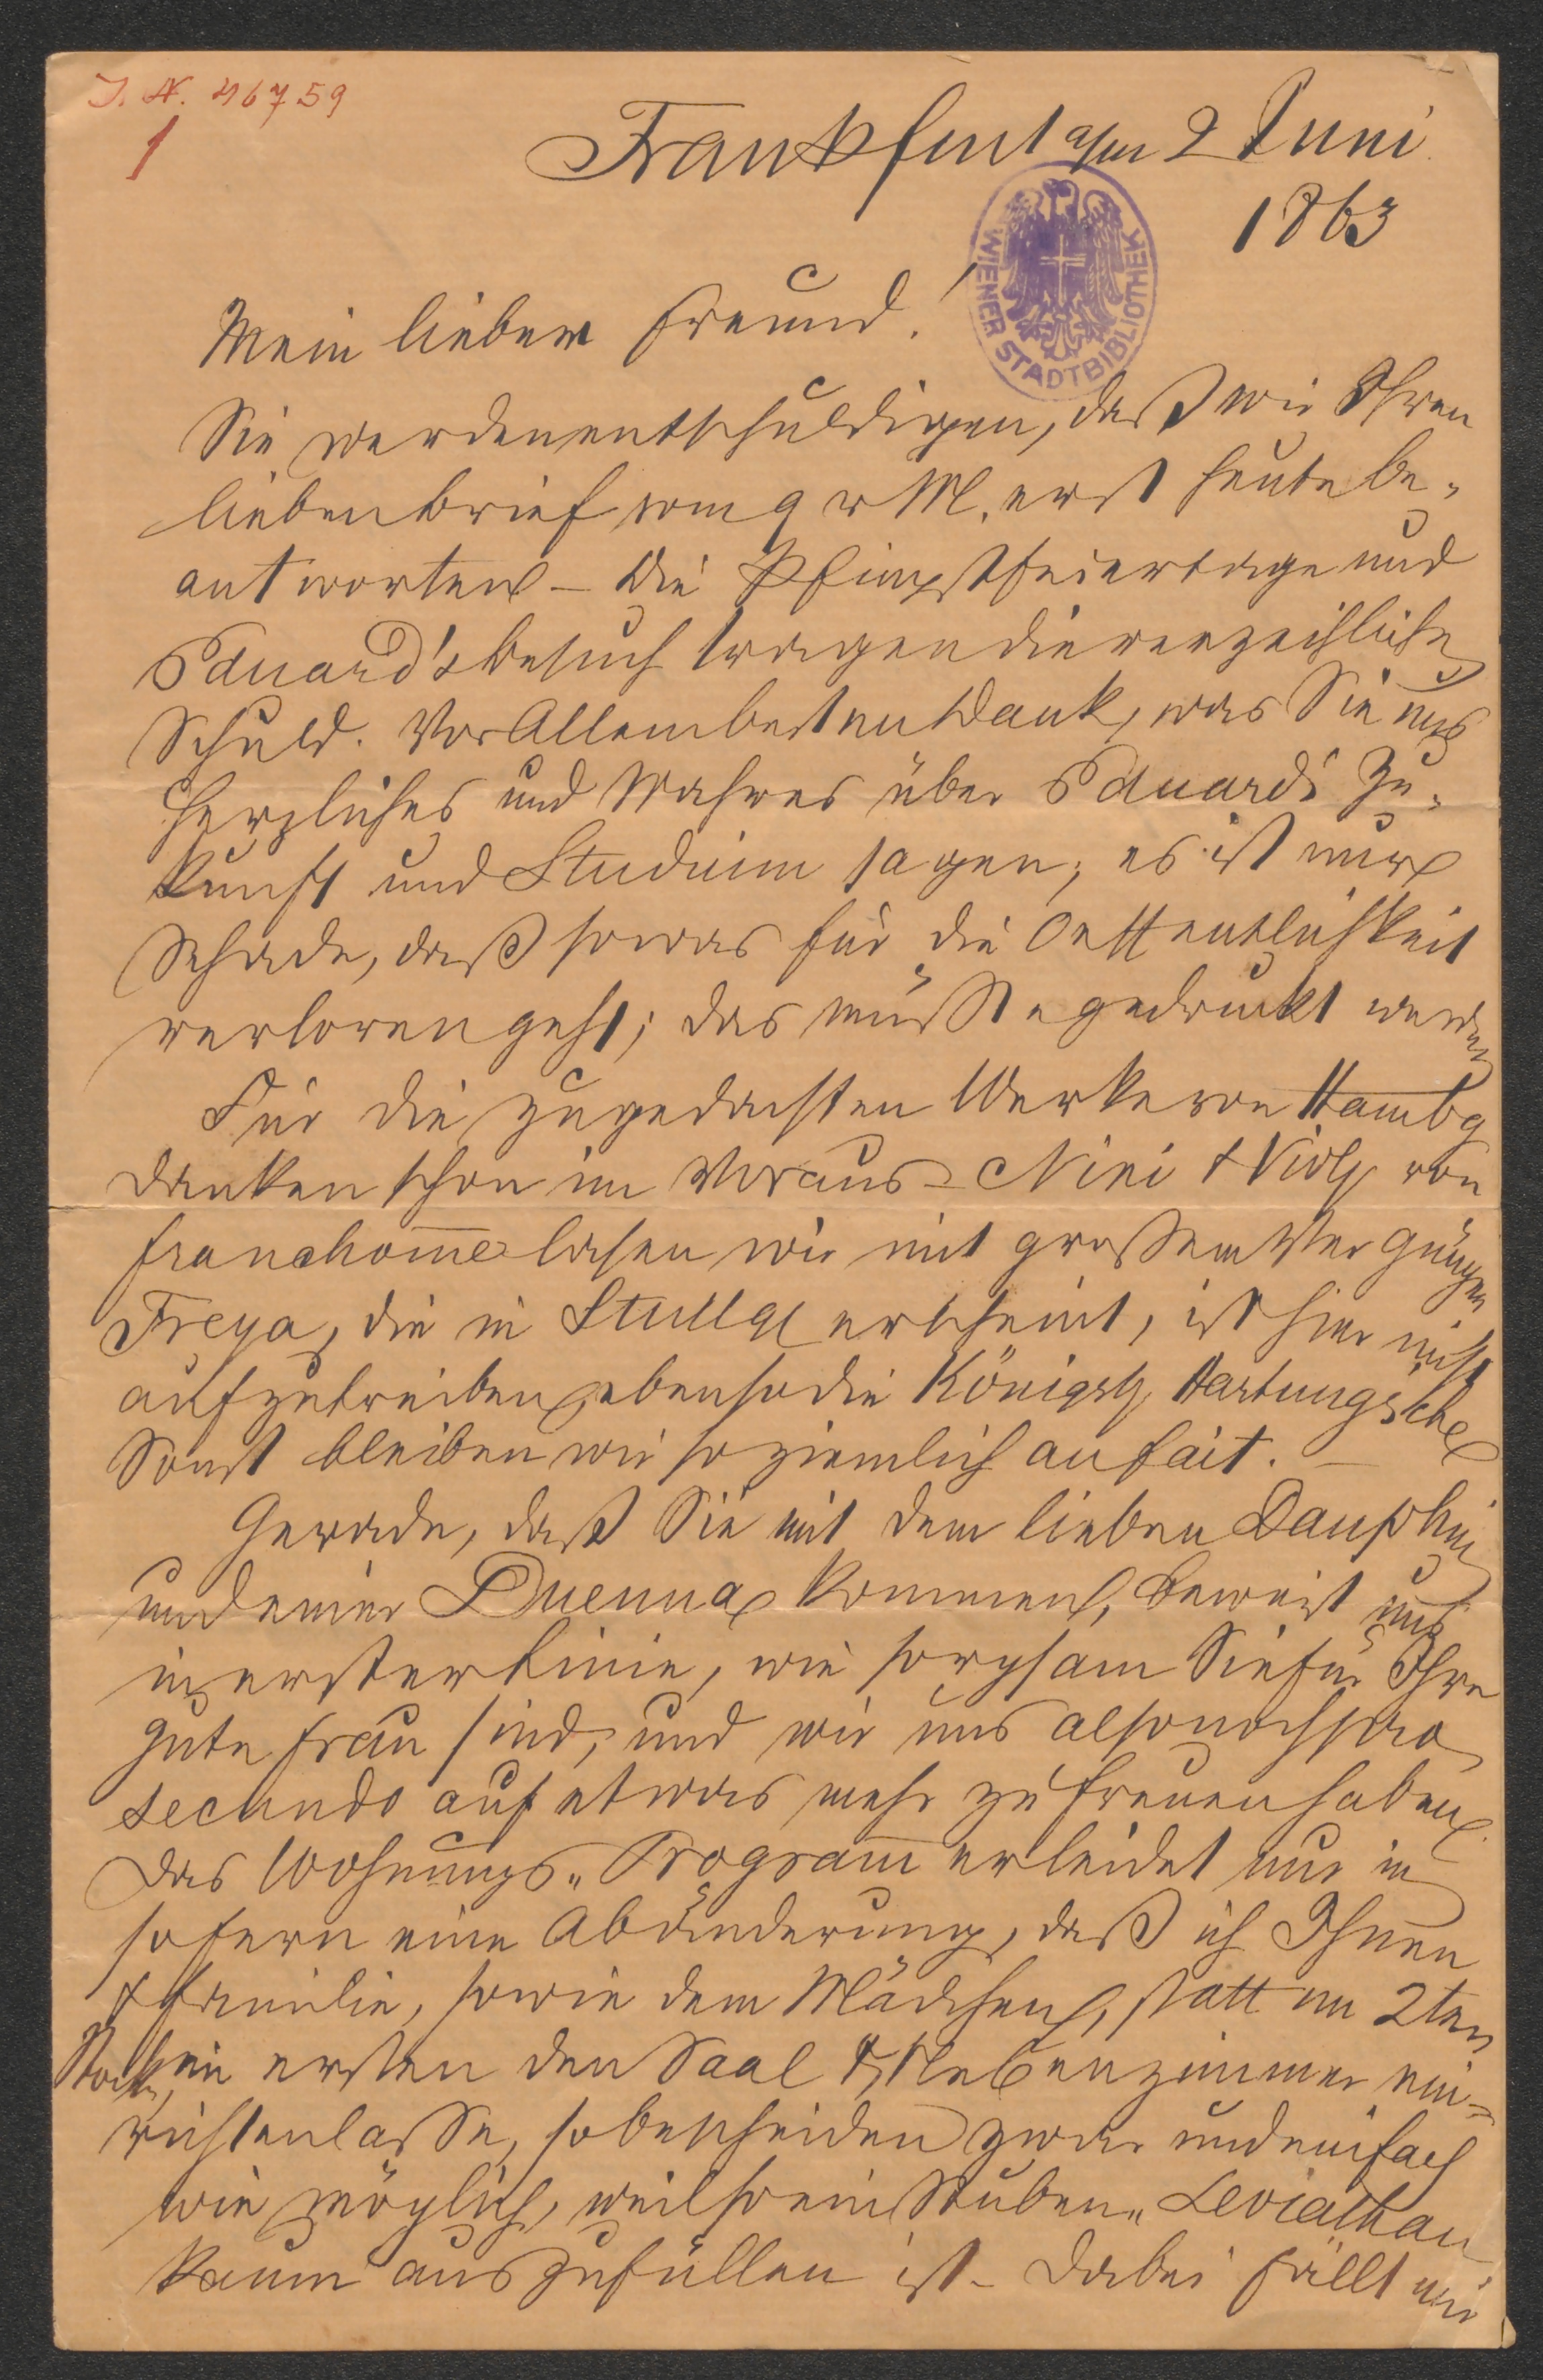 I. N. 46759
1
Frankfurt a/m 2 Juni
1863
WIENER STADTBIBLIOTHEK
Mein lieber Freund!
Sie werden entschuldigen, daß wir Ihren
lieben Brief vom 9 v M. erst heute be-
antworten – die Pfingstfeiertage und
Eduard's Besuch tragen die verzeihliche
Schuld. Vor Allem besten Dank, was Sie uns
Herzliches und Wahres über Eduards Zu-
kunft und Studium sagen; es ist nur
Schade, daß sowas für die Oeffentlichkeit
verloren geht; das müßte gedruckt werden
Für die zugedachten Werke von Hambg
danken schon im Voraus – Nini & von
Franchom̅e lasen wir mit großem Vergnügen
Freya, die in Stuttg erscheint, ist hier nicht
aufzutreiben, ebenso die Königsb. Hartungsche
Sonst bleiben wir so ziemlich au fait. –
Gerade, daß Sie mit dem lieben Dauphin
und einer Duenna kommen, beweist uns
in erster Linie, wie sorgsam Sie für Ihre
gute Frau sind, und wir uns also noch pro
secundo auf etwas mehr zu freuen haben.
Das Wohnungs-Program̅ erleidet nur in
sofern eine Abänderung, daß ich Ihnen
& Familie, sowie dem Mädchen, statt im 2ten
Stock, im ersten den Saal & Nebenzimmer ein-
richten lasse, so bescheiden zwar und einfach
wie möglich, weil so ein Stuben-Leviathan
kaum auszufüllen ist – Dabei fällt mir